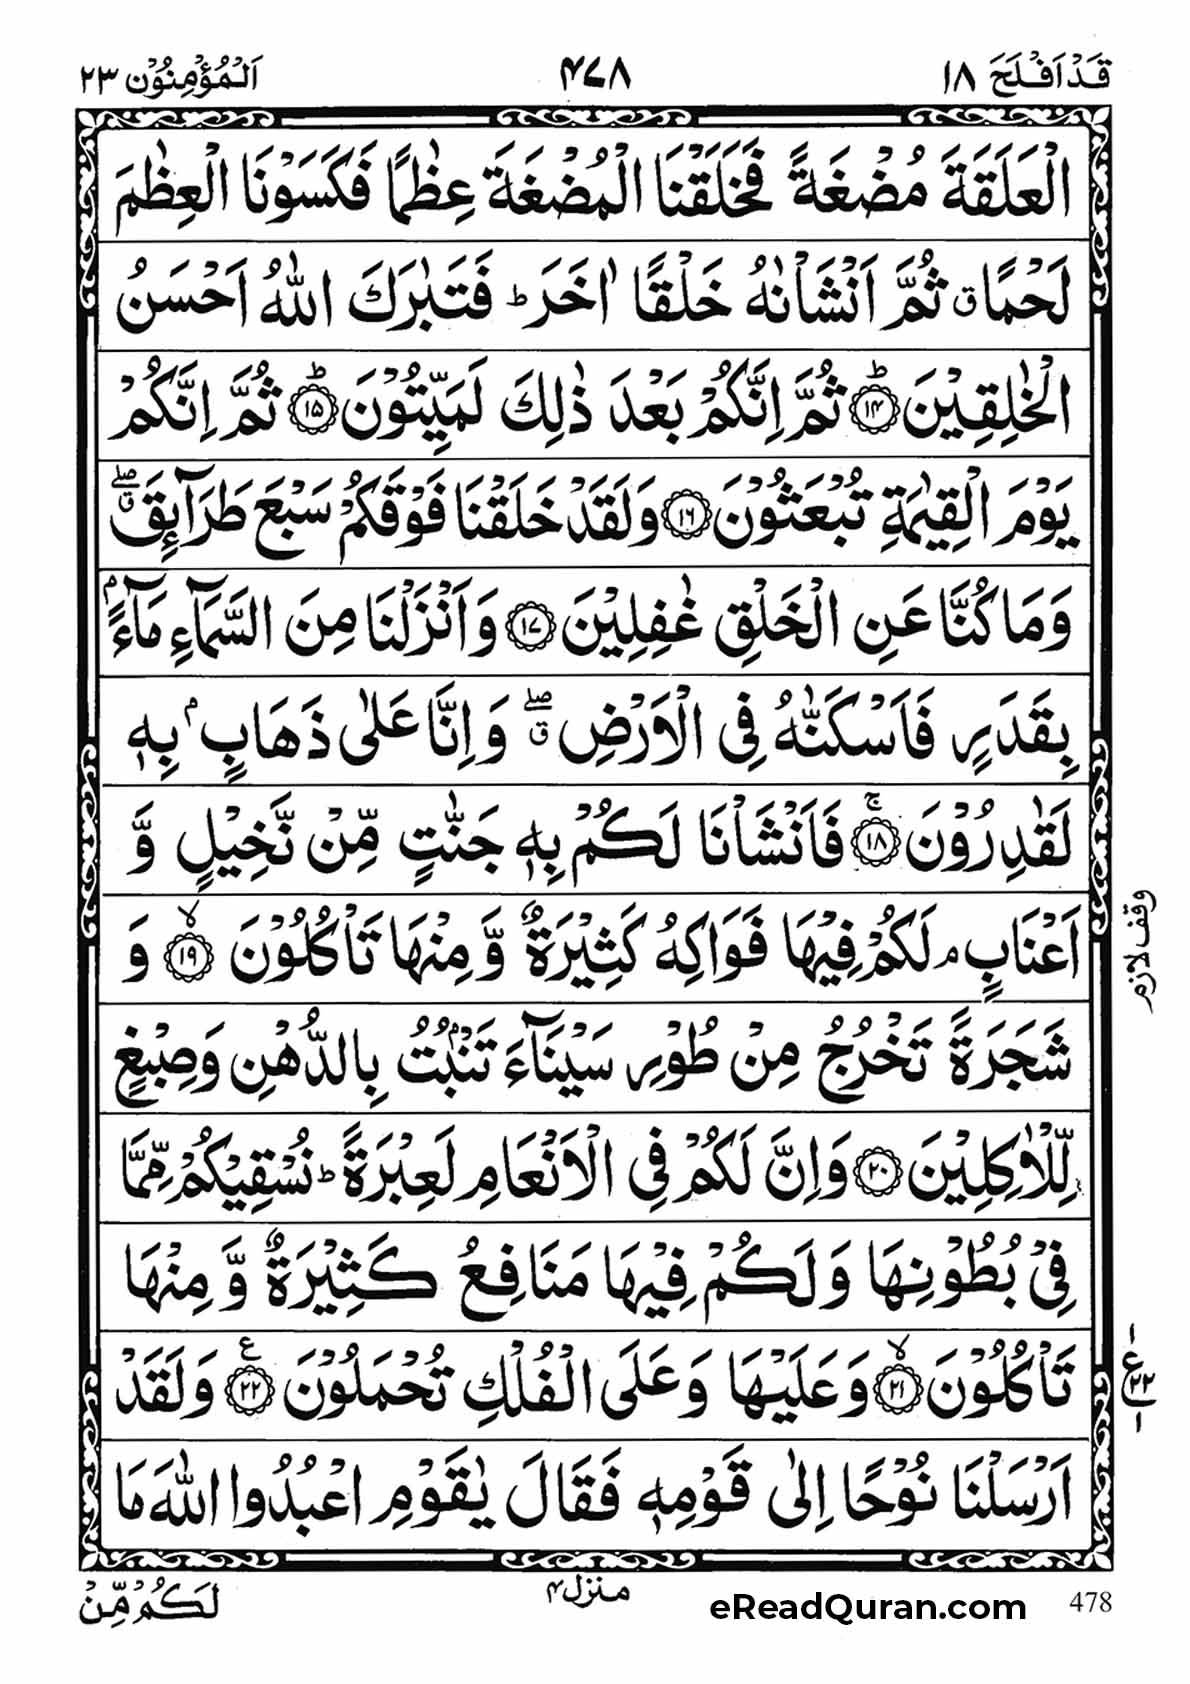 قَدْ اَفْلَحَ ١٨
٤٧٨
اَلْمُؤْمِنُوْن ٢٣
الْعَلَقَةَ مُضْغَةً فَخَلَقْنَا الْمُضْغَةَ عِظٰمًا فَكَسَوْنَا الْعِظٰمَ
لَحْمًا ۤق ثُمَّ اَنْشَاْنٰهُ خَلْقًا اٰخَرَ ؕ فَتَبٰرَكَ اللّٰهُ اَحْسَنُ
الْخٰلِقِيْنَ ؕ ﴿١٤﴾ ثُمَّ اِنَّكُمْ بَعْدَ ذٰلِكَ لَمَيِّتُوْنَ ؕ ﴿١٥﴾ ثُمَّ اِنَّكُمْ
يَوْمَ الْقِيٰمَةِ تُبْعَثُوْنَ ﴿١٦﴾ وَلَقَدْ خَلَقْنَا فَوْقَكُمْ سَبْعَ طَرَآئِقَ ۖق
وَمَا كُنَّا عَنِ الْخَلْقِ غٰفِلِيْنَ ﴿١٧﴾ وَاَنْزَلْنَا مِنَ السَّمَآءِ مَآءًۢ
بِقَدَرٍ فَاَسْكَنّٰهُ فِى الْاَرْضِ ۖق وَاِنَّا عَلٰى ذَهَابٍۭ بِهٖ
لَقٰدِرُوْنَ ۚ ﴿١٨﴾ فَاَنْشَاْنَا لَكُمْ بِهٖ جَنّٰتٍ مِّنْ نَّخِيْلٍ وَّ
اَعْنَابٍ ۘ لَكُمْ فِيْهَا فَوَاكِهُ كَثِيْرَةٌ وَّ مِنْهَا تَاْكُلُوْنَ ۙ ﴿١٩﴾ وَ
وقف لازم
شَجَرَةً تَخْرُجُ مِنْ طُوْرِ سَيْنَآءَ تَنْۢبُتُ بِالدُّهْنِ وَصِبْغٍ
لِّلْاٰكِلِيْنَ ﴿٢٠﴾ وَاِنَّ لَكُمْ فِى الْاَنْعَامِ لَعِبْرَةً ؕ نُسْقِيْكُمْ مِّمَّا
فِىْ بُطُوْنِهَا وَلَكُمْ فِيْهَا مَنَافِعُ كَثِيْرَةٌ وَّ مِنْهَا
تَاْكُلُوْنَ ۙ ﴿٢١﴾ وَعَلَيْهَا وَعَلَى الْفُلْكِ تُحْمَلُوْنَ ع ﴿٢٢﴾ وَلَقَدْ
ع ٢٢
اَرْسَلْنَا نُوْحًا اِلٰى قَوْمِهٖ فَقَالَ يٰقَوْمِ اعْبُدُوا اللّٰهَ مَا
لَكُمْ مِّنْ
منزل ٤
eReadQuran.com
478